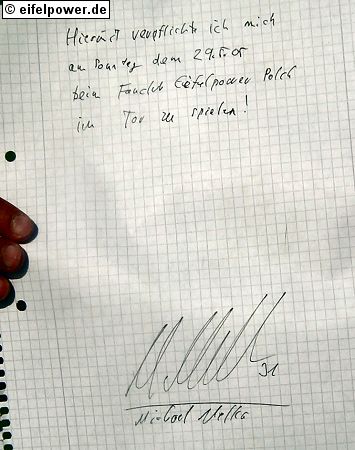 © eifelpower.de
Hiermit verpflichte ich mich
am Sonntag dem 29.5.05
beim Fanclub Eifelpower Polch
im Tor zu spielen!
31
Michael Melka